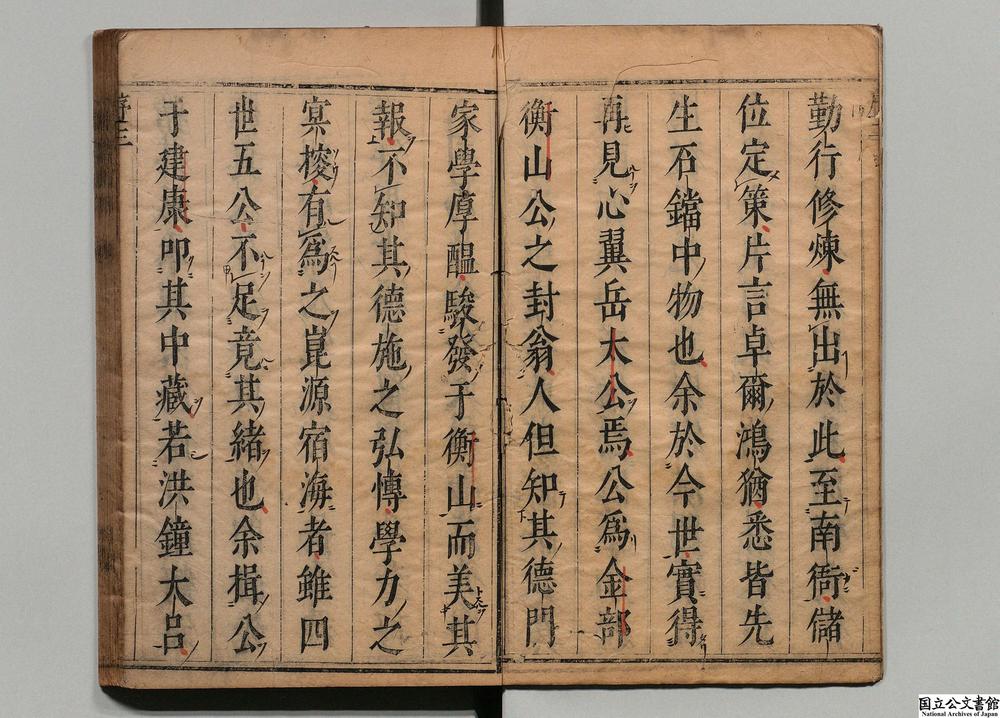 勤行修煉無出於此至南衙儲
位定策片言卓爾鴻猶悉皆先
生石鐺中物也余於今世實得
再見心翼岳大公焉公爲金部
衡山公之封翁人但知其德門
家學厚醞駿發于衡山而美其
報不知其德施之弘慱學力之
有爲之崑源宿海者雖四
世五公不足竟其緒也余揖公
于建康叩其中藏若洪鐘大呂
序三
国立公文書館
National Archives of Japan